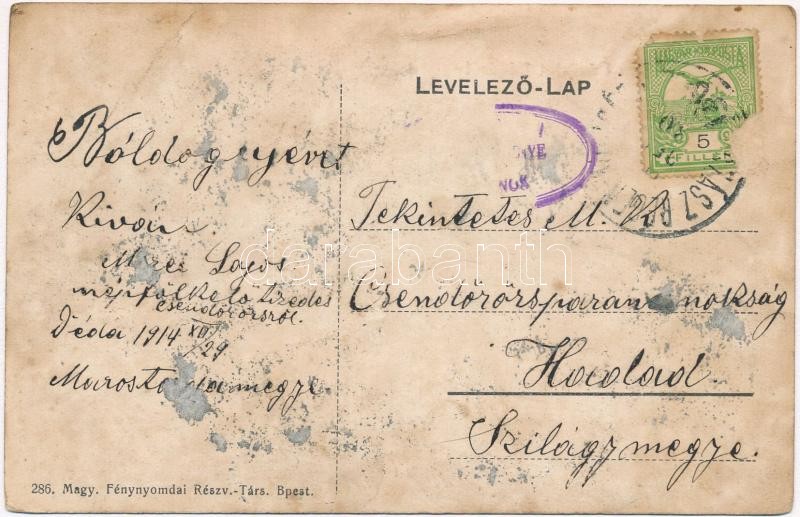 LEVELEZŐ-LAP
MAGYAR KIR. POSTA
5
FILLÉR
Bóldog ujévet
Kiván
Lajos
népfölkelő tizedes
csendőrörsről.
Déda 1914 XII/29
Marostordamegye
Tekintetes M. Kir
Csendőrörsparancsnokság
Hadad.
Szilágymegye.
darabanth
286. Magy. Fénynyomdai Részv.-Társ. Bpest.